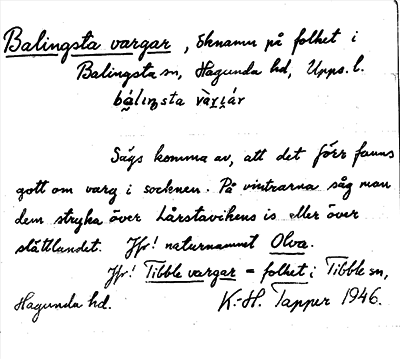 Balingsta vargar, öknamn på folket i
Balingsta sn, Hagunda hd, Upps. l.
báliŋsta
Sägs komma av, att det förr fanns
gott om varg i socknen. På vintrarna såg man
dem stryka över Lårstavikens is eller över
slättlandet. Jfr! naturnamnet Olva.
Jfr! Tibble vargar = folket i Tibble sn,
Hagunda hd. K.-H. Tapper 1946.